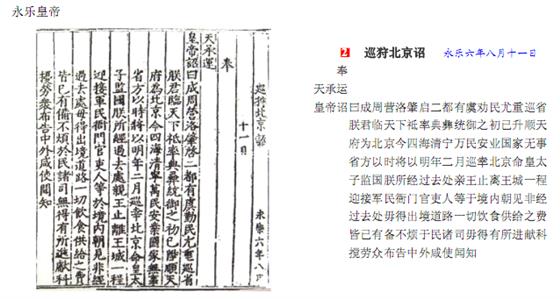 永乐皇帝
巡狩北京詔 永樂六年八月
十一日
奉
天承運
皇帝詔曰成周營洛肇啓二都有虞勤民尤重巡省
朕君臨天下祗率典彝統御之初已陞順天
府為北京今四海清寧萬民安業國家無事
省方以時將以明年二月巡幸北京命皇太
子監國朕所經過去處親王止離王城一程
迎接軍民衙門官吏人等於境內朝見非經
過去處毋得出境道路一切飲食供給之費
皆已有備不煩於民諸司無得有所進獻科
擾勞衆布告中外咸使聞知
2 巡狩北京诏 永乐六年八月十一日
奉
天承运
皇帝诏曰成周营洛肇启二都有虞劝民尤重巡省
朕君临天下祗率典彝统御之初已升顺天
府为北京今四海清宁万民安业国家无事
省方以时将以明年二月巡幸北京命皇太
子监国朕所经过去处亲王止离王城一程
迎接军民衙门官吏人等于境内朝见非经
过去处毋得出境道路一切饮食供给之费
皆已有备不烦于民诸司毋得有所进献科
搅劳众布告中外咸使闻知